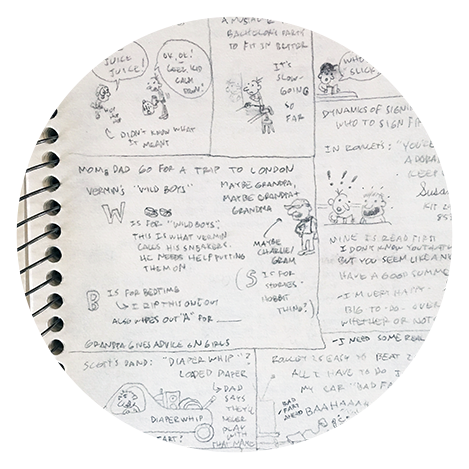 A MUSICAL
BACHELOR'S PARTY
TO FIT IN BETTER
JUICE
JUICE!
OK, OK!
KID
CALM
DOWN!
IT'S
SLOW-
GOING
SO
FAR
SLICK
DIDN'T KNOW WHAT
IT MEANT
DYNAMICS OF SIGNI
WHO TO SIGN FI
IN ROWLEY'S: "YOU'RE
ADORA
KEEP
MOM, DAD GO FOR A TRIP TO LONDON
VERMIN'S "WILD BOYS"
MAYBE GRANDPA,
MAYBE GRANDPA +
GRANDMA
W
IS FOR "WILD BOYS",
THIS IS WHAT VERMIN
CALLS HIS SNEAKERS.
HE NEEDS HELP PUTTING
THEM ON
MAYBE
CHARLIE/
GRAM
S IS FOR
STORIES-
HOBBIT
THING?)
B IS FOR BEDTIME
I RIP THIS ONE OUT
ALSO WIPES OUT "A" FOR
GRANDPA GIVES ADVICE ON GIRLS
READ FIRST
I DON'T KNOW YOU THAT
BUT YOU SEEM LIKE A N
HAVE A GOOD SUMME
-I'M VERY HAPPY-
BIG TO-DO OVER
WHETHER OR NOT
-I NEED SOME REAL
SCOTT'S BAND: "DIAPER WHIP"?
LOADED DIAPER
DAD
SAYS
THEY'LL
NEVER
PLAY
WITH
THAT NAME
DIAPER WHIP
ROWLEY IS EASY TO BEAT
ALL I HAVE TO DO I
MY CAR "BAD FA
BAD
FART
AHEAD
BAAHAAAA